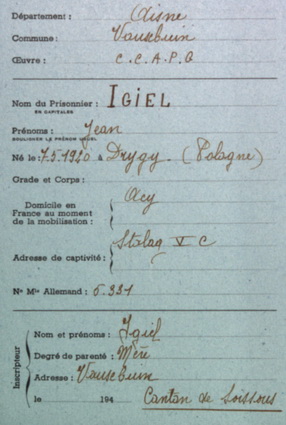 Département : Aisne
Commune : Vauxbuin
Œuvre : C.C.A.P.G
Nom du Prisonnier : IGIEL
EN CAPITALES
Prénoms : Jean
SOULIGNER LE PRÉNOM USUEL
Né le : 7.5.1920 à Drygy. (Pologne)
Grade et Corps :
Domicile en
France au moment
de la mobilisation : Acy
Adresse de captivité : Stalag V C
No Mle Allemand : 6.331
Inscripteur
Nom et prénoms : Igiel
Degré de parenté : Mère
Adresse : Vauxbuin
le 194 Canton de Soissons